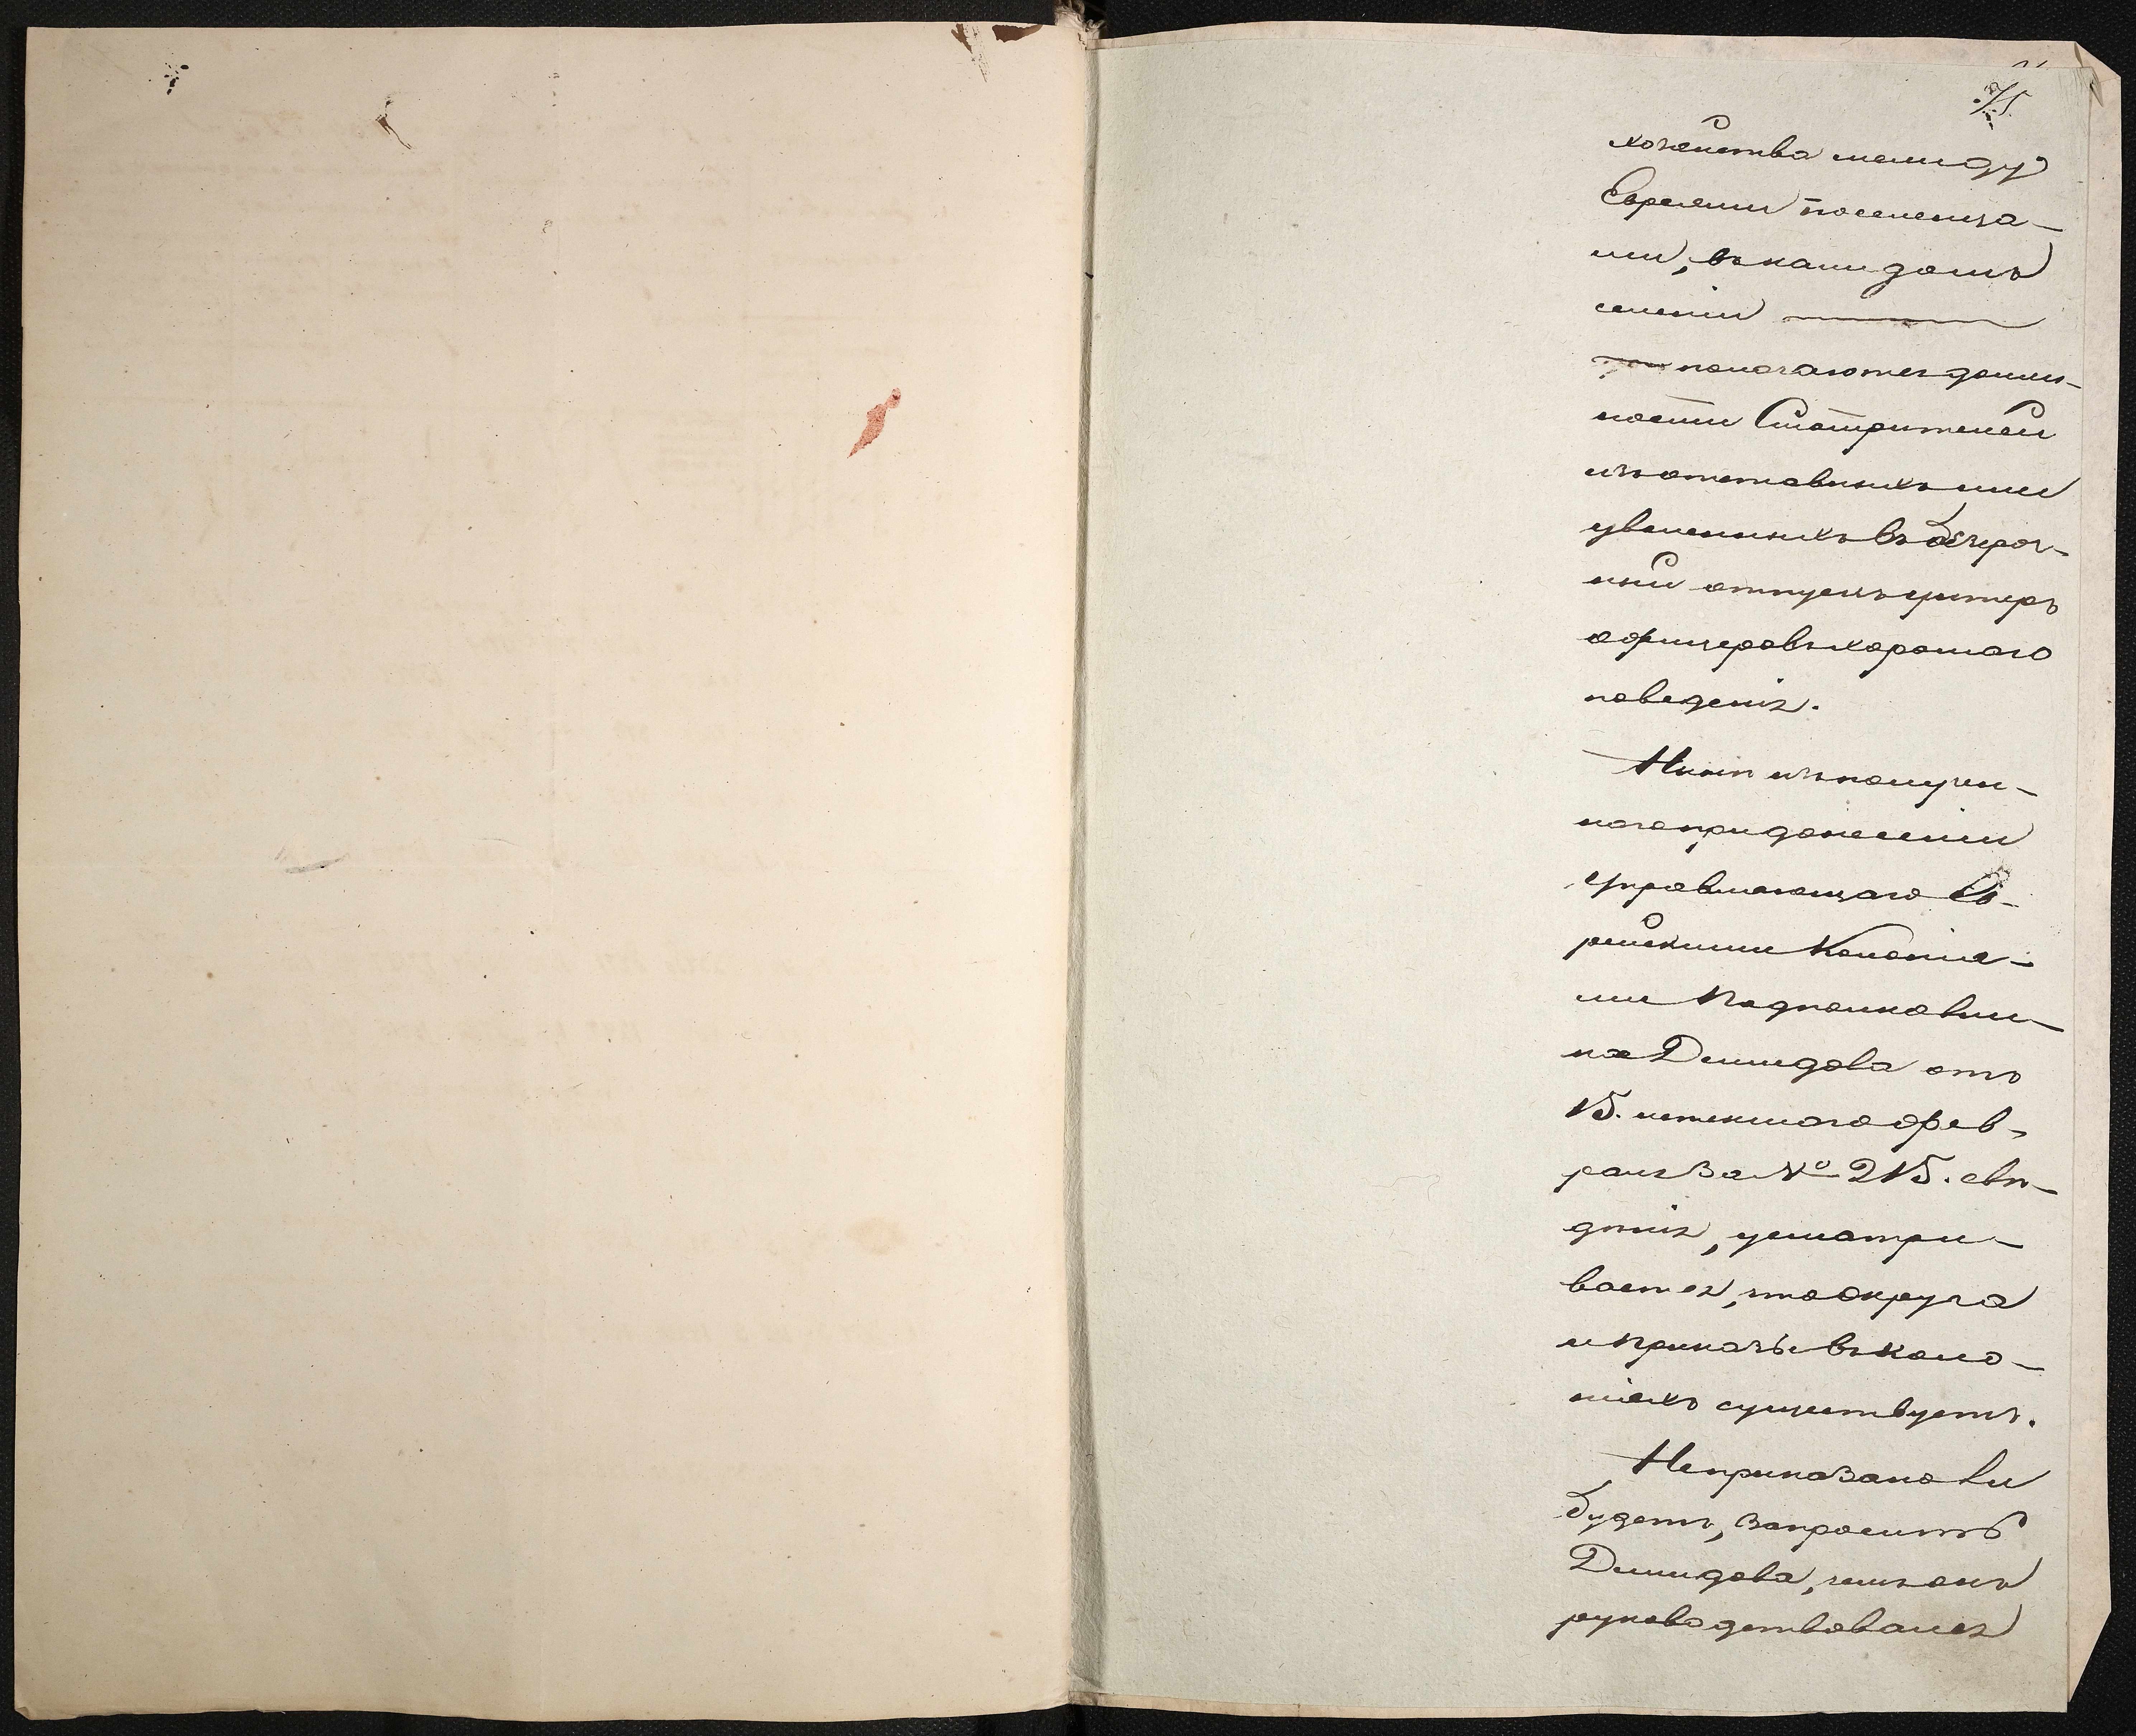 хозяйства между
Евреями поселенца-
ми, въ каждомъ
селеніи
полагаются долж-
ности Смотрителей
изъ отставныхъ или
уволенныхъ въ безсроч-
ный отпускъ унтеръ
офицеровъ хорошаго
поведенія.
Нынѣ изъ получен-
наго при донесеніи
управляющаго Ев-
рейскими Колонія-
ми Подполковни-
ка Демидова отъ
15. истекшаго Фев-
раля за № 215. свѣ-
дѣнія, усматри-
вается, что округа
и приказы въ коло-
ніяхъ существуетъ.
Не приказано ли
будетъ, запросить
Демидова, чемъ онъ
руководствовался